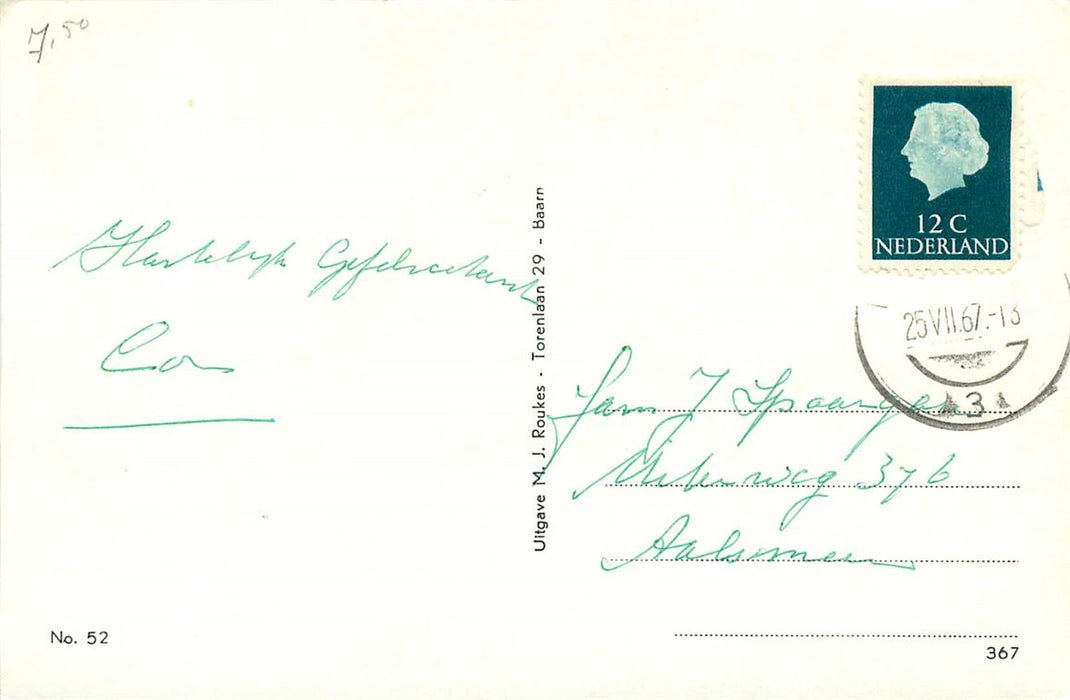 7,50
12 C
NEDERLAND
25 VII.67.-13
3
Hartelijk Gefeliciteerd
Cor
Uitgave M. J. Roukes - Torenlaan 29 - Baarn
Fam J Spaargaren
Uiterweg 376
Aalsmeer
No. 52
367